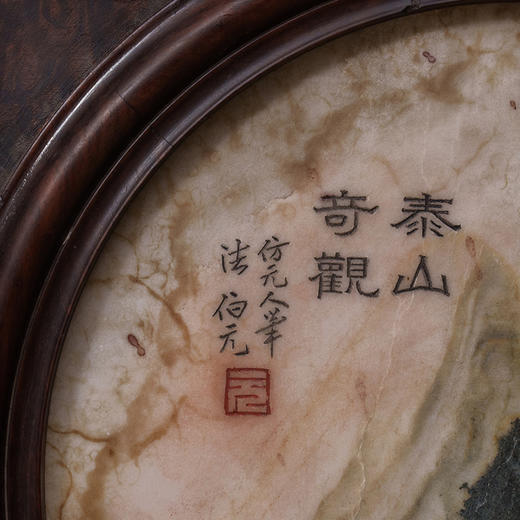 泰山
奇觀
仿元人筆
法 伯元